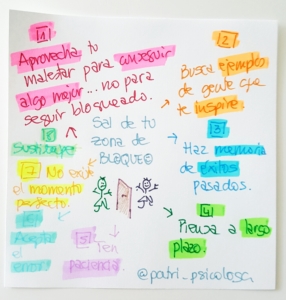 1
Aprovecha tu
malestar para conseguir
algo mejor... no para
seguir bloqueado.
2
Busca ejemplos
de gente que
te inspire.
Sal de tu
zona de
BLOQUEO
3
Haz memoria
de éxitos
pasados.
4
Piensa a largo
plazo.
5
Ten
paciencia.
Acepta
el
error.
7 No existe
el momento
perfecto.
8
Sustituye
@patri_psicologa